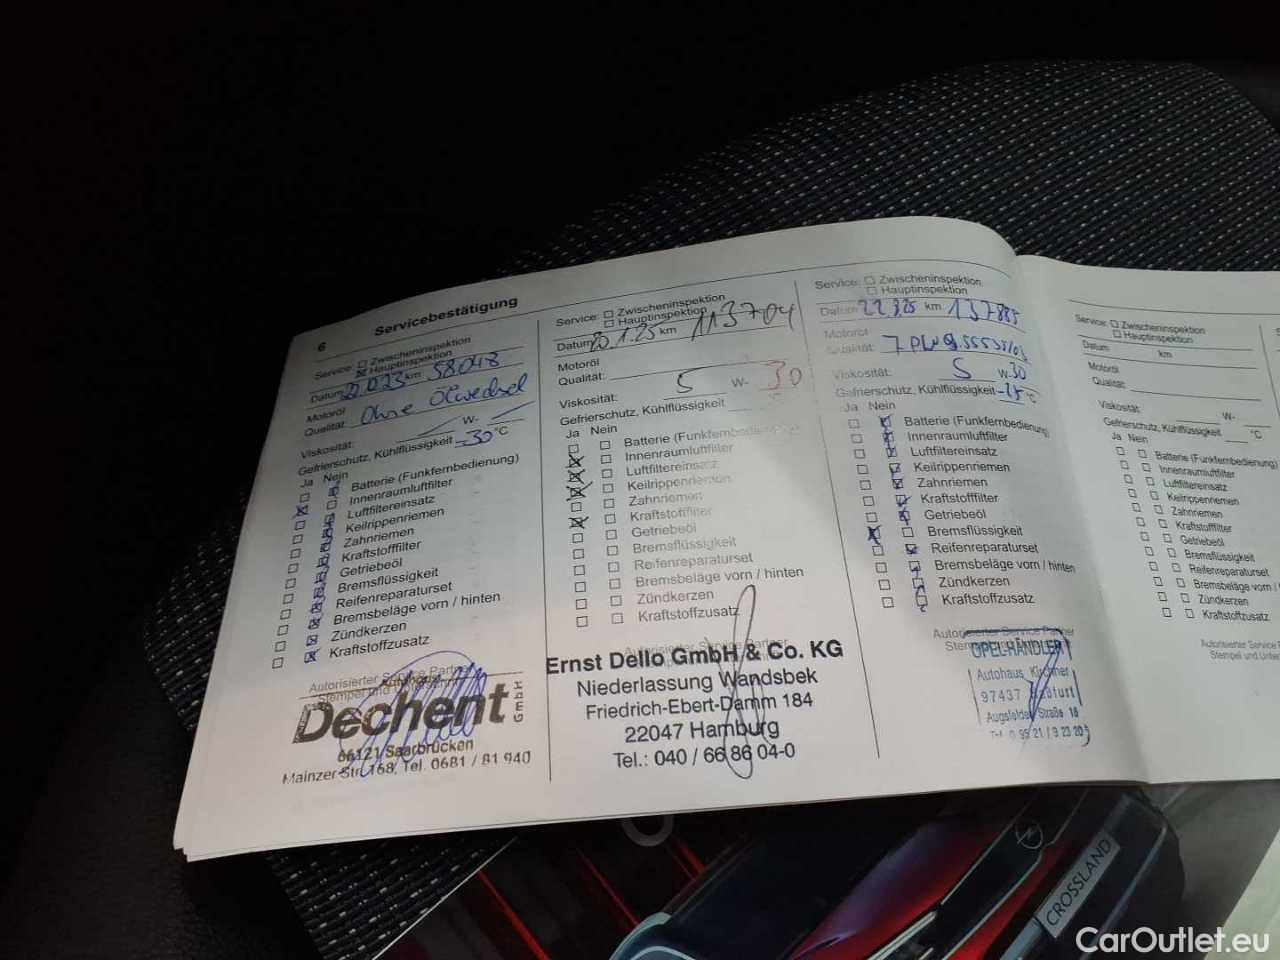 6
Servicebestätigung
Service: Zwischeninspektion
Hauptinspektion
Datum km 58048
Motoröl Ohne Ölwechsel
Qualität:
Viskosität: W-
Gefrierschutz, Kühlflüssigkeit -30 °C
Ja Nein
Batterie (Funkfernbedienung)
Innenraumluftfilter
Luftfiltereinsatz
Keilrippenriemen
Zahnriemen
Kraftstofffilter
Getriebeöl
Bremsflüssigkeit
Reifenreparaturset
Bremsbeläge vorn / hinten
Zündkerzen
Kraftstoffzusatz
Autorisierter Service Partner
Stempel und
Autohaus
Dechent GmbH
66121 Saarbrücken
Mainzer Str. 168, Tel. 0681 / 81 940
Service: Zwischeninspektion
Hauptinspektion
Datum 20.1.25 km 113704
Motoröl
Qualität:
Viskosität: 5 W- 30
Gefrierschutz, Kühlflüssigkeit °C
Ja Nein
Batterie (Funkfernbedienung)
Innenraumluftfilter
Luftfiltereinsatz
Keilrippenriemen
Zahnriemen
Kraftstofffilter
Getriebeöl
Bremsflüssigkeit
Reifenreparaturset
Bremsbeläge vorn / hinten
Zündkerzen
Kraftstoffzusatz
Autorisierter Service Partner
Ernst Dello GmbH & Co. KG
Niederlassung Wandsbek
Friedrich-Ebert-Damm 184
22047 Hamburg
Tel.: 040 / 66 86 04-0
Service: Zwischeninspektion
Hauptinspektion
Datum km 137885
Motoröl
Qualität:
Viskosität: 5 W- 30
Gefrierschutz, Kühlflüssigkeit °C
Ja Nein
Batterie (Funkfernbedienung)
Innenraumluftfilter
Luftfiltereinsatz
Keilrippenriemen
Zahnriemen
Kraftstofffilter
Getriebeöl
Bremsflüssigkeit
Reifenreparaturset
Bremsbeläge vorn / hinten
Zündkerzen
Kraftstoffzusatz
Autorisierter Service Partner
OPEL-HÄNDLER
Autohaus Kirchner
97437
Augsfelder Straße 18
Service: Zwischeninspektion
Hauptinspektion
Datum: km
Motoröl
Qualität:
Viskosität: W-
Gefrierschutz, Kühlflüssigkeit °C
Ja Nein
Batterie (Funkfernbedienung)
Innenraumluftfilter
Luftfiltereinsatz
Keilrippenriemen
Zahnriemen
Kraftstofffilter
Getriebeöl
Bremsflüssigkeit
Reifenreparaturset
Bremsbeläge vorn /
Zündkerzen
Kraftstoffzusatz
Autorisierter Service
Stempel und
CROSSLAND
CarOutlet.eu